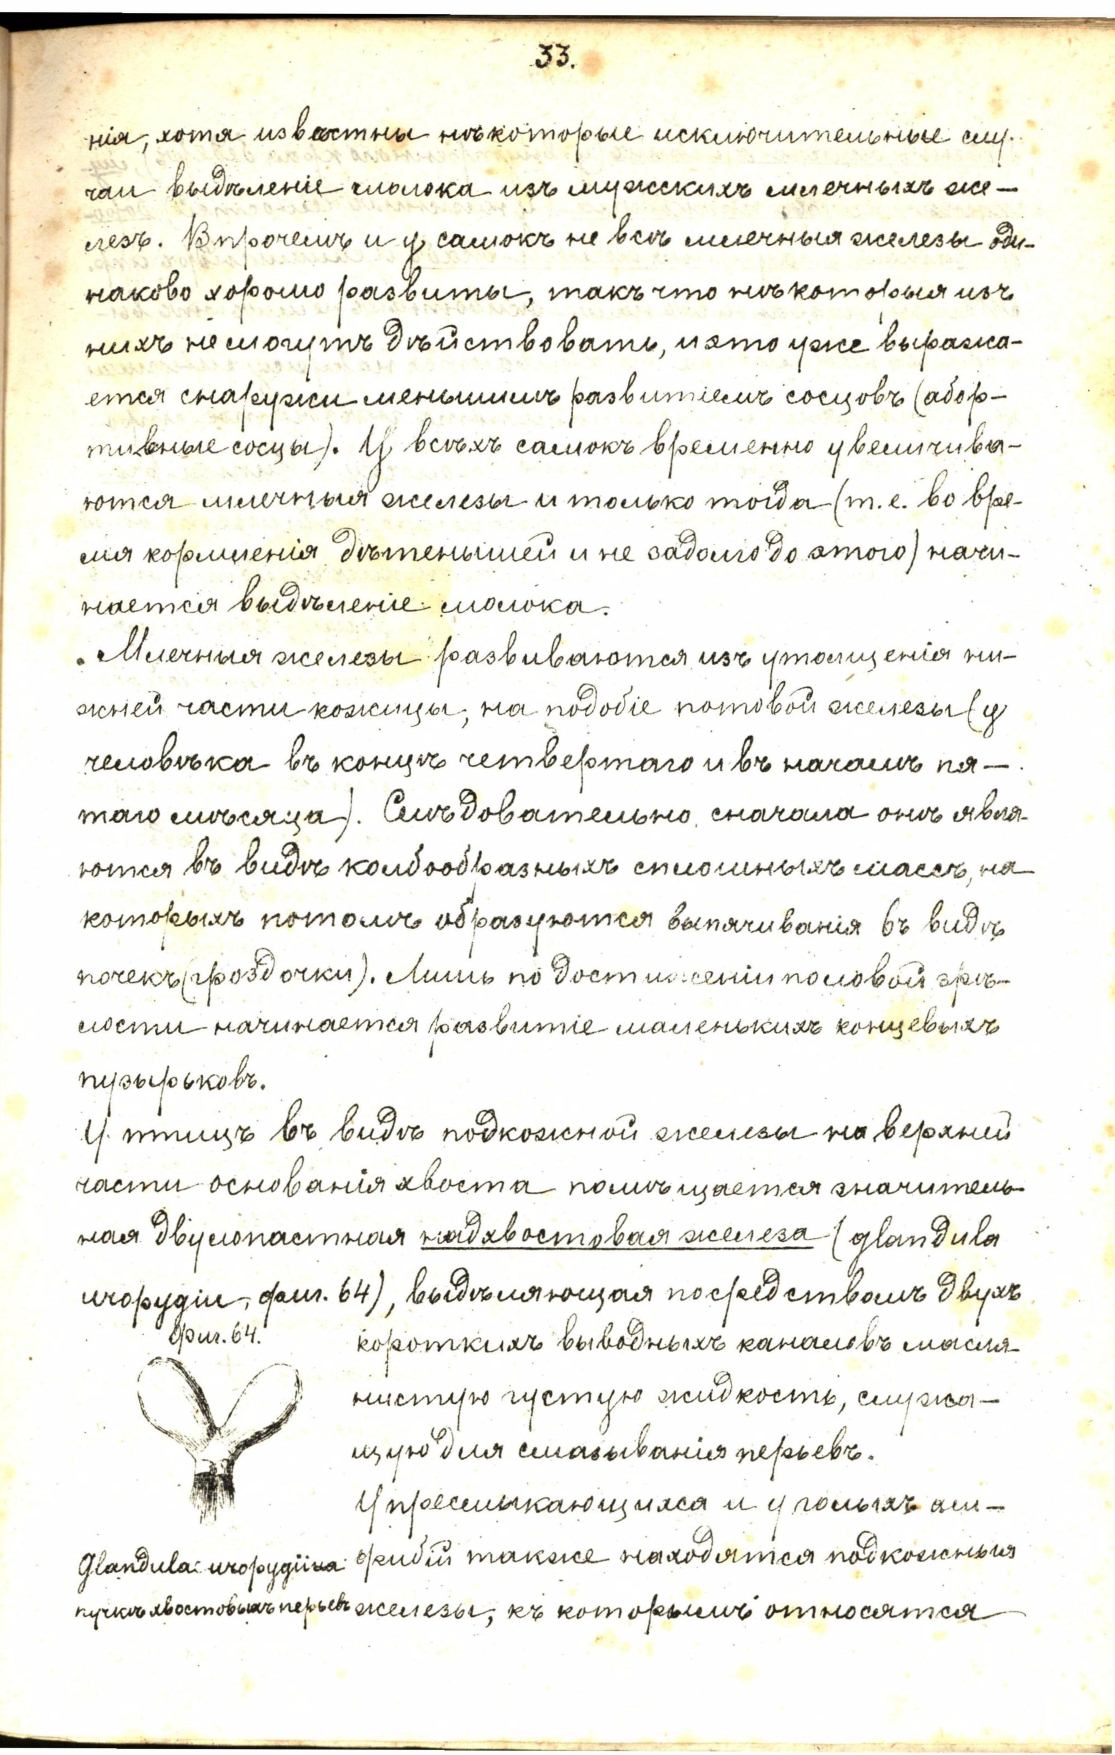 33.
нія, хотя извѣстны нѣкоторые исключительные слу-
чаи выдѣленіе молока изъ мужскихъ млечныхъ же-
лезъ. Впрочемъ и у самокъ не всѣ млечныя железы оди-
наково хорошо развиты, такъ что нѣкоторыя изъ
нихъ не могутъ дѣйствовать, и это уже выража-
ется снаружи меньшимъ развитіемъ сосцовъ (абор-
тивные сосцы). У всѣхъ самокъ временно увеличива-
ются млечныя железы и только тогда (т.е. во вре-
мя кормленія дѣтенышей и не задолго до этого) начи-
нается выдѣленіе молока.
Млечныя железы развиваются изъ утолщенія ни-
жней части кожицы, на подобіе потовой железы (у
человѣка въ концѣ четвертаго и въ началѣ пя-
таго мѣсяца). Слѣдовательно сначала онѣ явля-
ются въ видѣ колбообразныхъ сплошныхъ массъ, на
которыхъ потомъ образуются выпячиванія въ видѣ
почекъ (гроздочки). Лишь по достиженіи половой зрѣ-
лости начинается развитіе маленькихъ концевыхъ
пузырьковъ.
У птицъ въ видѣ подкожной железы на верхней
части основанія хвоста помѣщается значитель-
ная двулопастная надхвостовая железа (glandula
uropygii, фиг. 64), выдѣляющая посредствомъ двухъ
короткихъ выводныхъ каналовъ масля-
нистую густую жидкость, служа-
щую для смазыванія перьевъ.
У пресмыкающихся и у голыхъ ам-
фибій также находятся подкожныя
железы, къ которымъ относятся
фиг. 64.
Glandula uropygii на
пучкѣ хвостовыхъ перьевъ